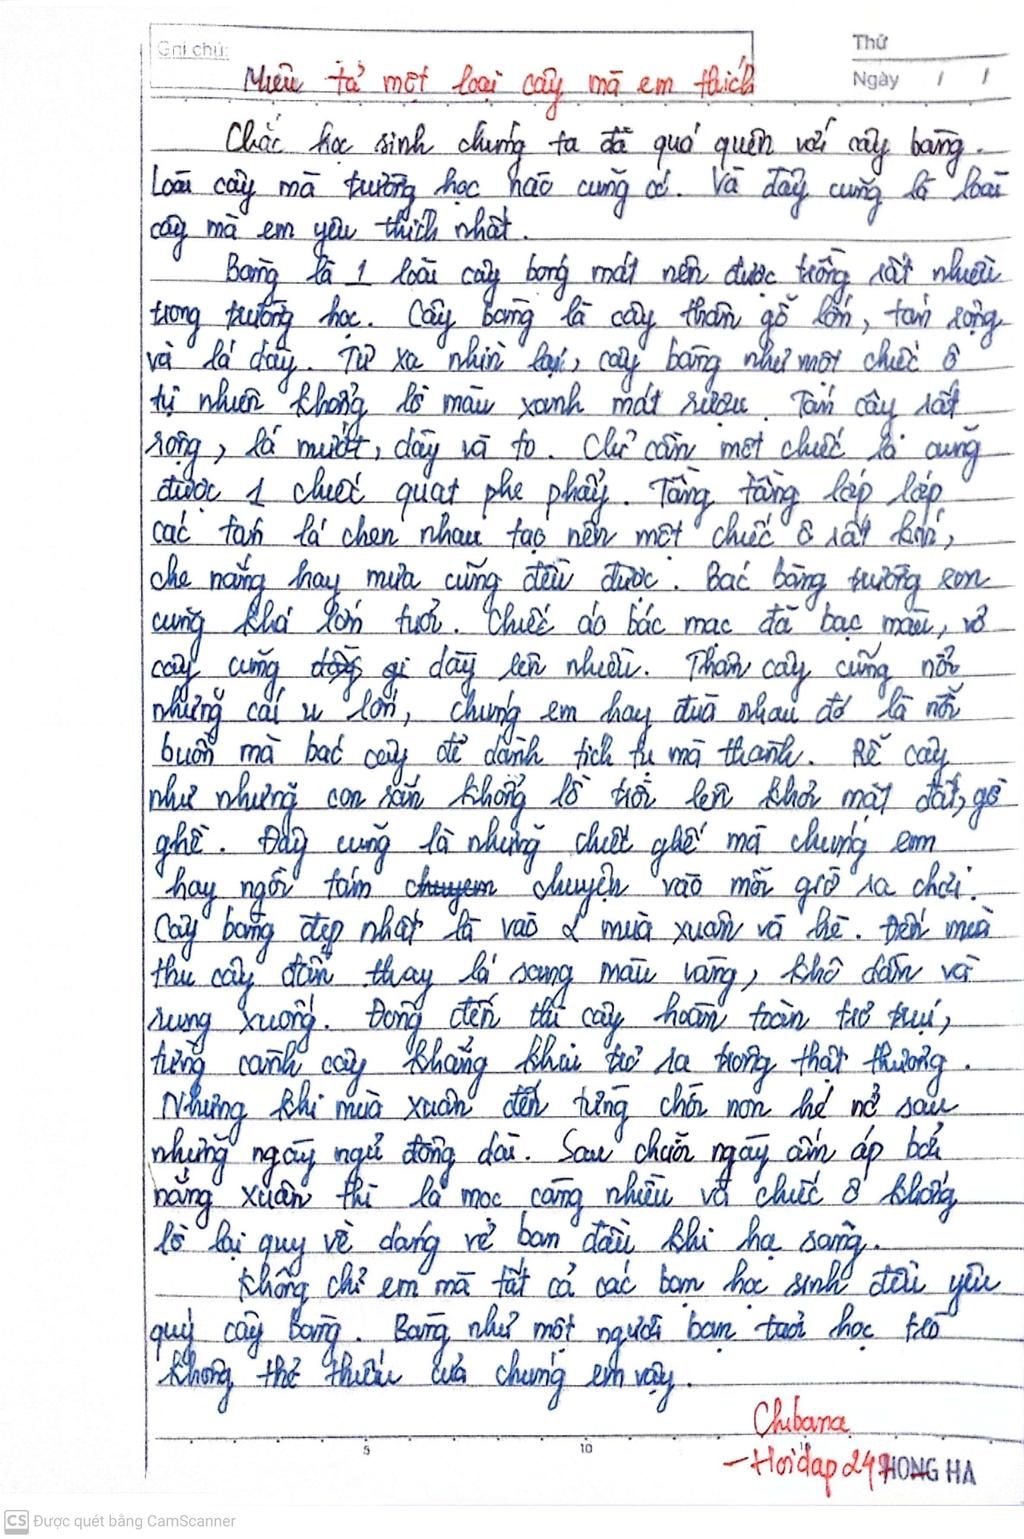 Ghi chú:
Thứ
Ngày / /
Miêu tả một loại cây mà em thích
Chắc học sinh chúng ta đã quá quen với cây bàng.
Loài cây mà trường học nào cũng có. Và đây cũng là loài
cây mà em yêu thích nhất.
Bàng là 1 loài cây bóng mát nên được trồng rất nhiều
trong trường học. Cây bàng là cây thân gỗ lớn, tán rộng
và lá dày. Từ xa nhìn lại, cây bàng như một chiếc ô
tự nhiên khổng lồ màu xanh mát rượu. Tán cây rất
rộng, lá mướt, dày và to. Chỉ cần một chiếc lá cũng
được 1 chiếc quạt phe phẩy. Tầng tầng lớp lớp
các tán lá chen nhau tạo nên một chiếc ô rất lớn,
che nắng hay mưa cũng đều được. Bác bàng trường em
cũng khá lớn tuổi. Chiếc áo bác mặc đã bạc màu, vỏ
cây cũng dày lên nhiều. Thân cây cũng nổi
những cái u lớn, chúng em hay đùa nhau đó là nỗi
buồn mà bác cây để dành tích tụ mà thành. Rễ cây
như những con rắn khổng lồ trồi lên khỏi mặt đất, gồ
ghề. Đây cũng là những chiếc ghế mà chúng em
hay ngồi tám chuyện vào mỗi giờ ra chơi.
Cây bàng đẹp nhất là vào 2 mùa xuân và hè. Đến mùa
thu cây dần thay lá sang màu vàng, khô dần và
rụng xuống. Đông đến thì cây hoàn toàn trơ trụi,
từng cành cây khẳng khiu trơ ra trông thật thương.
Nhưng khi mùa xuân đến từng chồi non hé nở sau
những ngày ngủ đông dài. Sau chuỗi ngày ấm áp bởi
nắng xuân thì lá mọc càng nhiều và chiếc ô khổng
lồ lại quy về dáng vẻ ban đầu khi hạ sang.
Không chỉ em mà tất cả các bạn học sinh đều yêu
quý cây bàng. Bàng như một người bạn tuổi học trò
không thể thiếu của chúng em vậy.
Chibana
- Hoidap247
5 10
HONG HA
CS Được quét bằng CamScanner